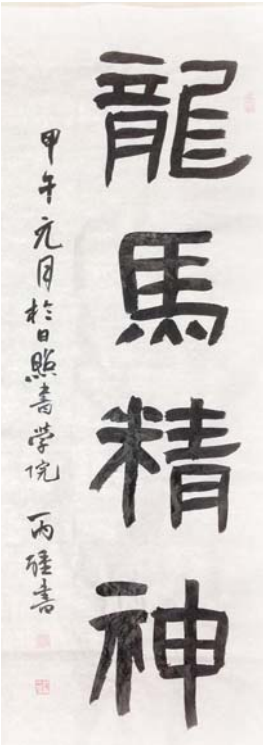 龍馬精神
甲午元月於日照書学院 丙 書